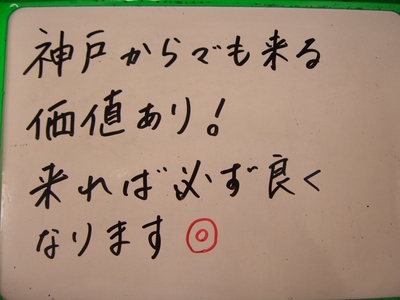 神戸からでも来る
価値あり!
来れば必ず良く
なります◎